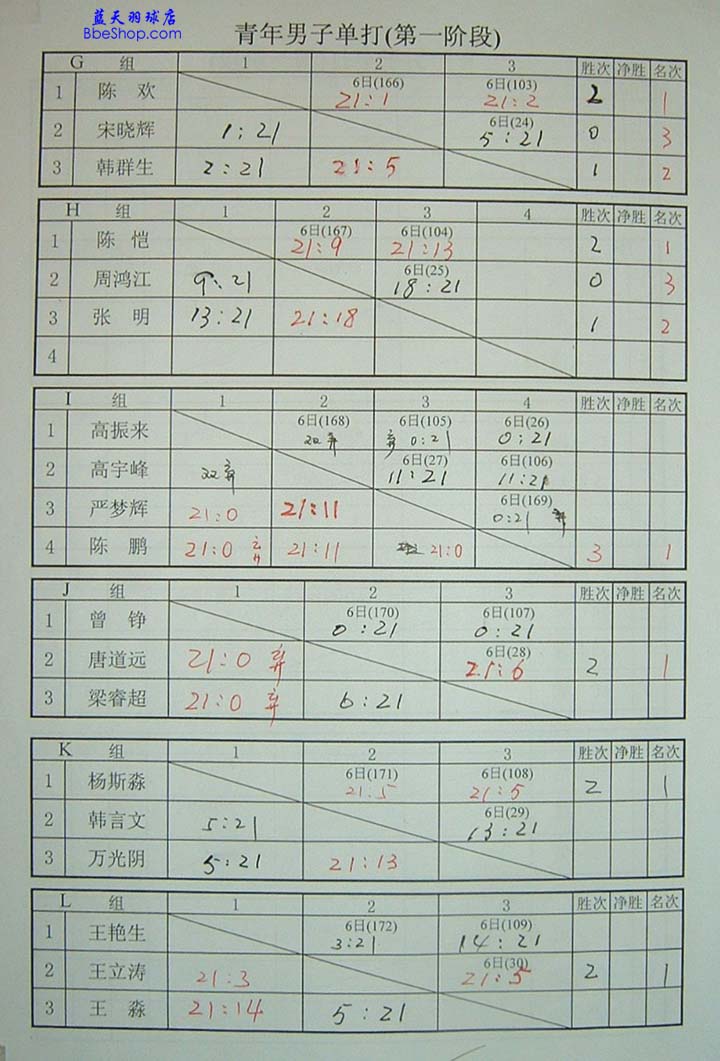 蓝天羽球店
BbeShop.com
青年男子单打(第一阶段)
G 组 1 2 3 胜次 净胜 名次
6日(166) 6日(103)
1 陈 欢 21:1 21:2 2 1
6日(24)
2 宋晓辉 1:21 5:21 0 3
3 韩群生 2:21 21:5 1 2
H 组 1 2 3 4 胜次 净胜 名次
6日(167) 6日(104)
1 陈 恺 21:9 21:13 2 1
6日(25)
2 周鸿江 9:21 18:21 0 3
3 张 明 13:21 21:18 1 2
4
I 组 1 2 3 4 胜次 净胜 名次
6日(168) 6日(105) 6日(26)
1 高振来 双弃 弃 0:21 0:21
6日(27) 6日(106)
2 高宇峰 双弃 11:21 11:21
6日(169)
3 严梦辉 21:0 21:11 0:21 弃
4 陈 鹏 21:0 弃 21:11 21:0 3 1
J 组 1 2 3 胜次 净胜 名次
6日(170) 6日(107)
1 曾 铮 0:21 0:21
6日(28)
2 唐道远 21:0 弃 21:6 2 1
3 梁睿超 21:0 弃 6:21
K 组 1 2 3 胜次 净胜 名次
6日(171) 6日(108)
1 杨斯淼 21:5 21:5 2 1
6日(29)
2 韩言文 5:21 13:21
3 万光阴 5:21 21:13
L 组 1 2 3 胜次 净胜 名次
6日(172) 6日(109)
1 王艳生 3:21 14:21
6日(30)
2 王立涛 21:3 21:5 2 1
3 王 淼 21:14 5:21